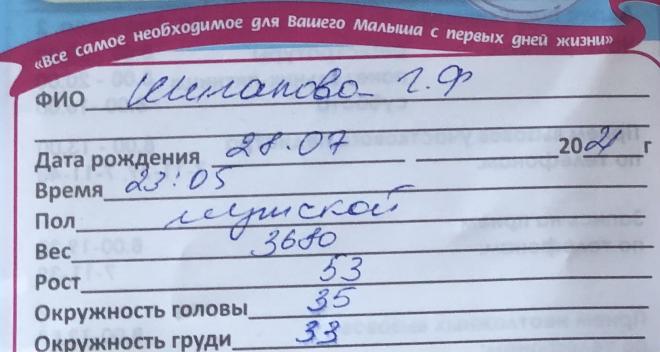 «Все самое необходимое для Вашего Малыша с первых дней жизни»
ФИО Г.Ф
Дата рождения 28.07 2021 г
Время 23:05
Пол мужской
Вес 3680
Рост 53
Окружность головы 35
Окружность груди 33